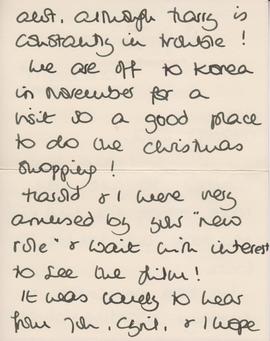 although Harry is
constantly in trouble!
We are off to Korea
in November for a
visit so a good place
to do the Christmas
shopping!
Harold & I were very
amused by your "new
role" & wait with interest
to see the film!
It was lovely to hear
from you, Cyril, & I hope